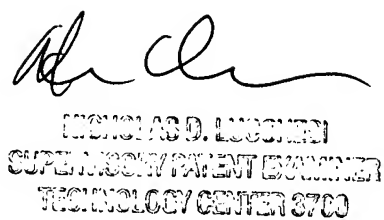 NICHOLAS D. LUCCHESI
SUPERVISORY PATENT EXAMINER
TECHNOLOGY CENTER 3700